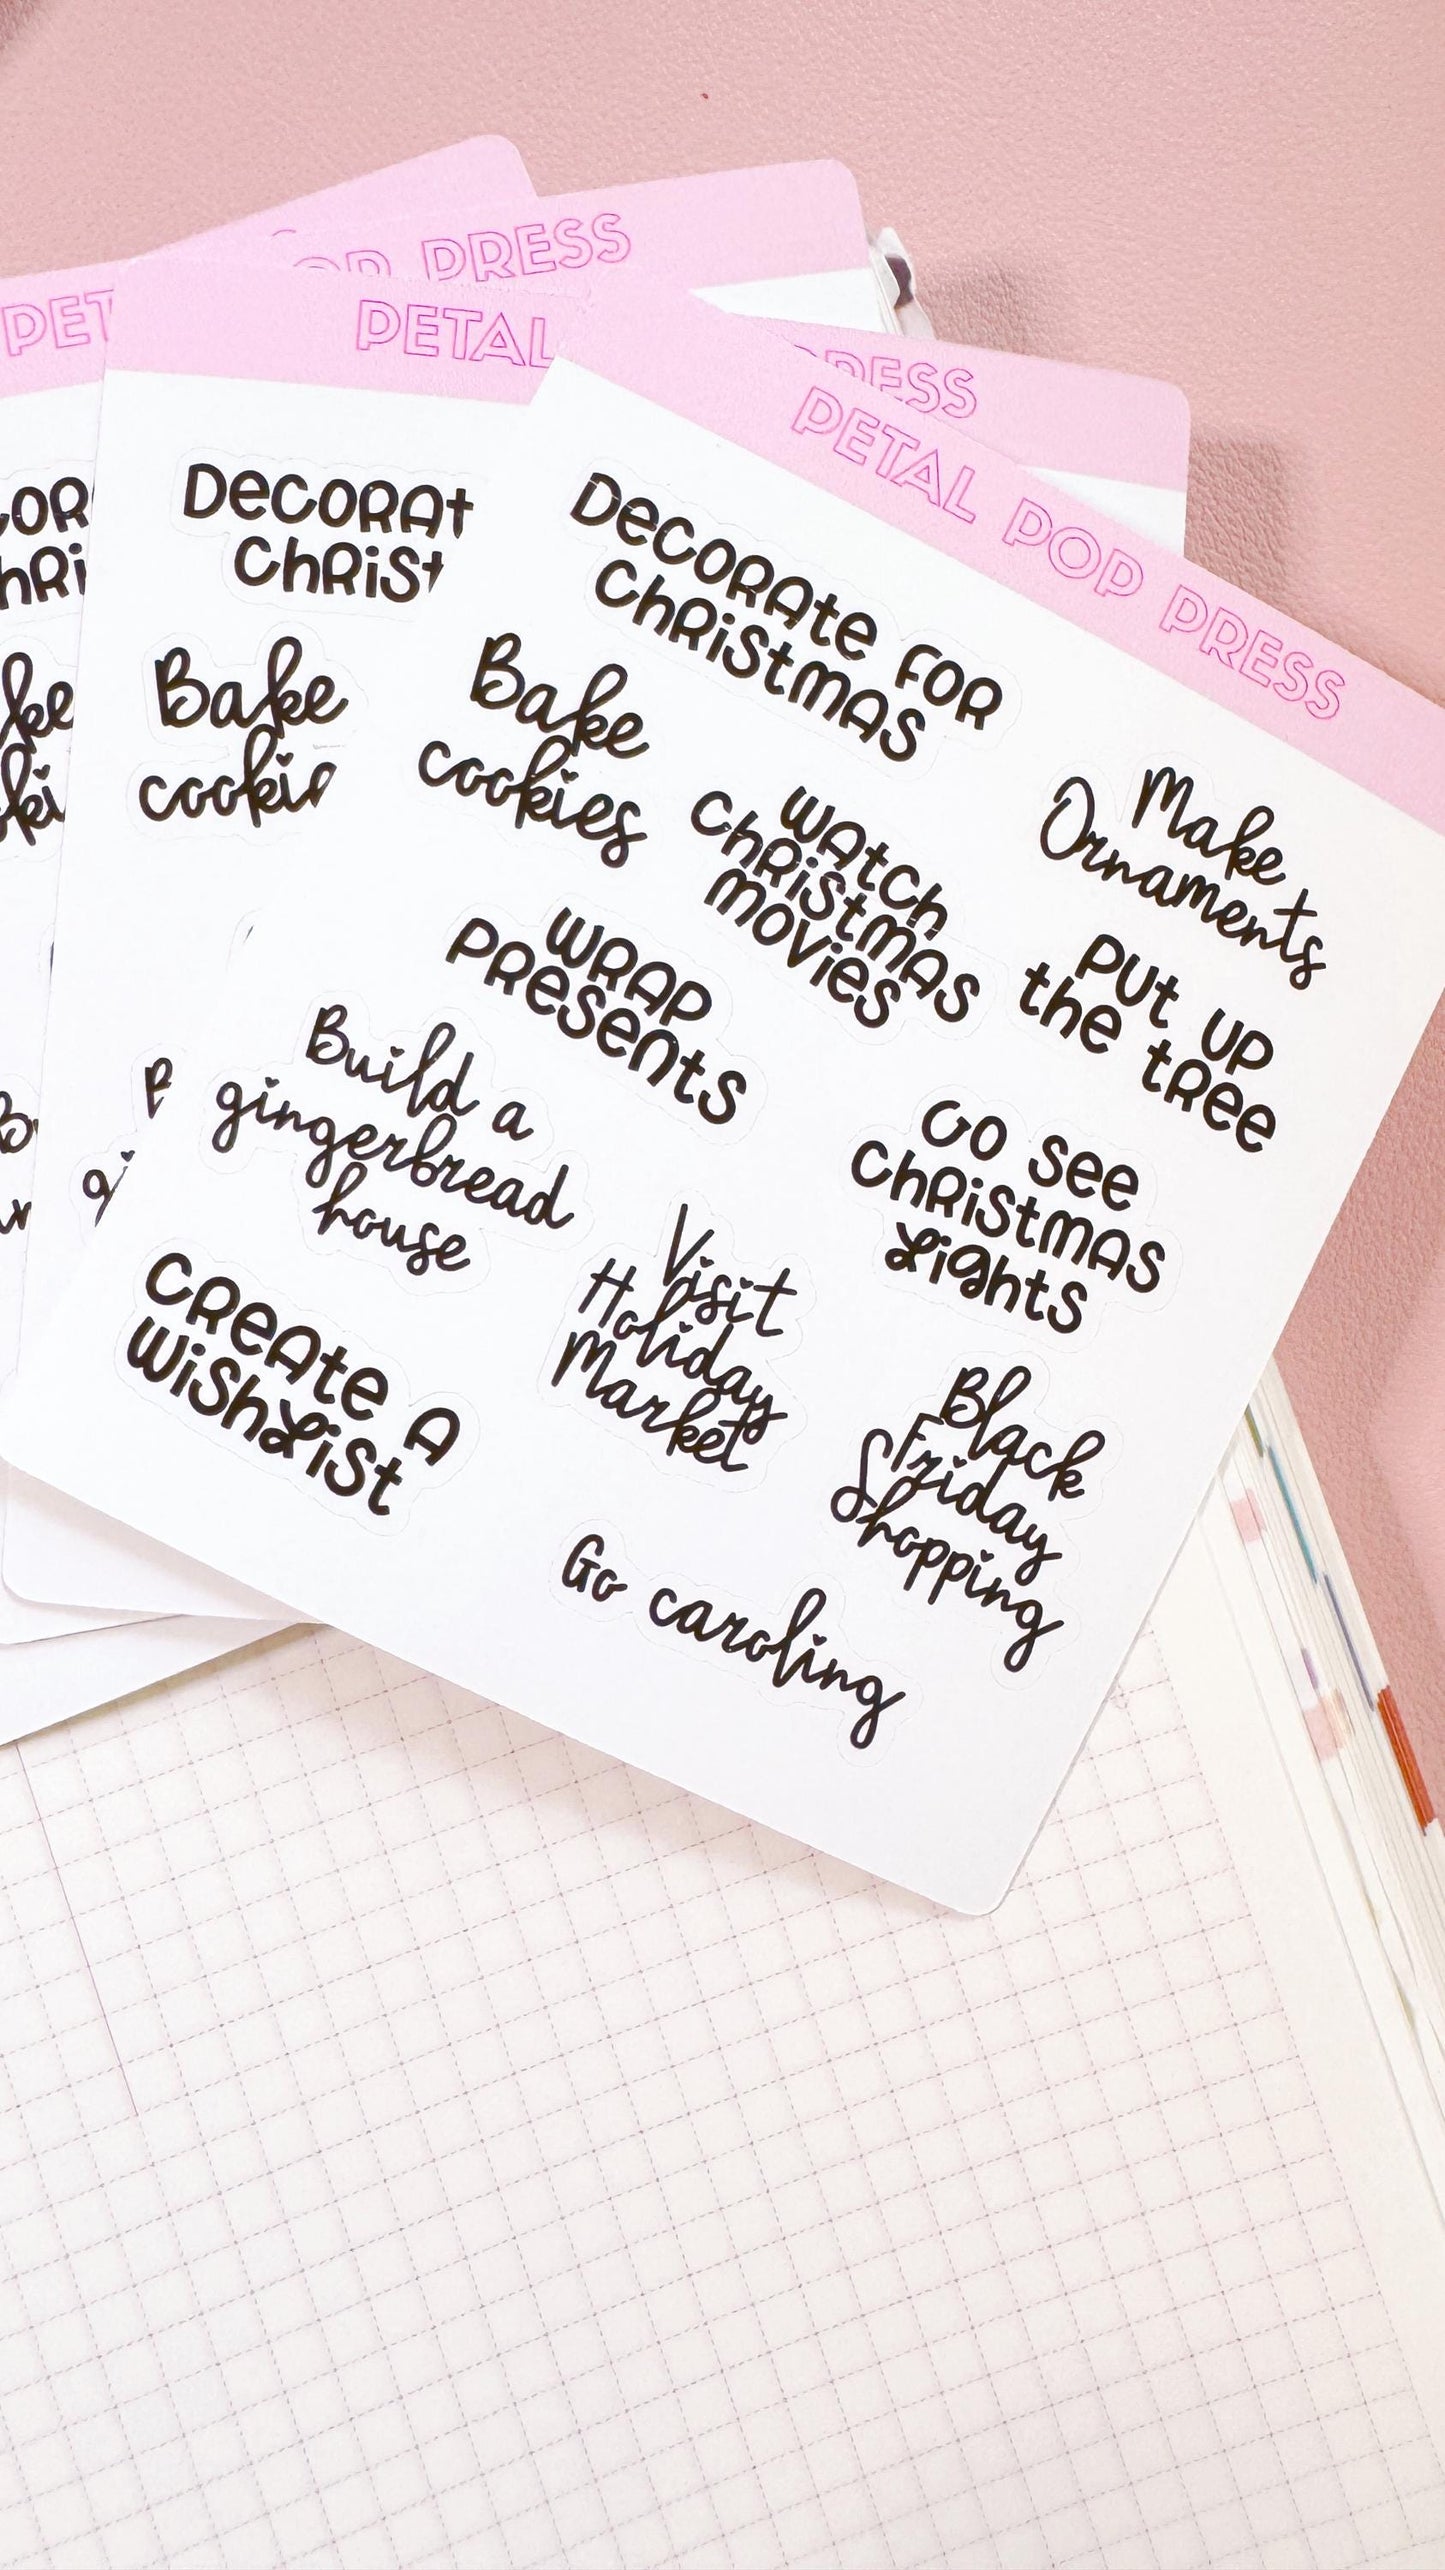 OP PRESS
PET
PETAL
RESS
PETAL POP PRESS
Decorate for
Christmas
Bake
cookies
Watch
Christmas
movies
Make
Ornaments
Put up
the tree
Wrap
presents
Build a
gingerbread
house
Go see
Christmas
Lights
Create a
Wishlist
Visit
Holiday
Market
Black
Friday
Shopping
Go caroling
Decorat
Christ
Bake
cooki